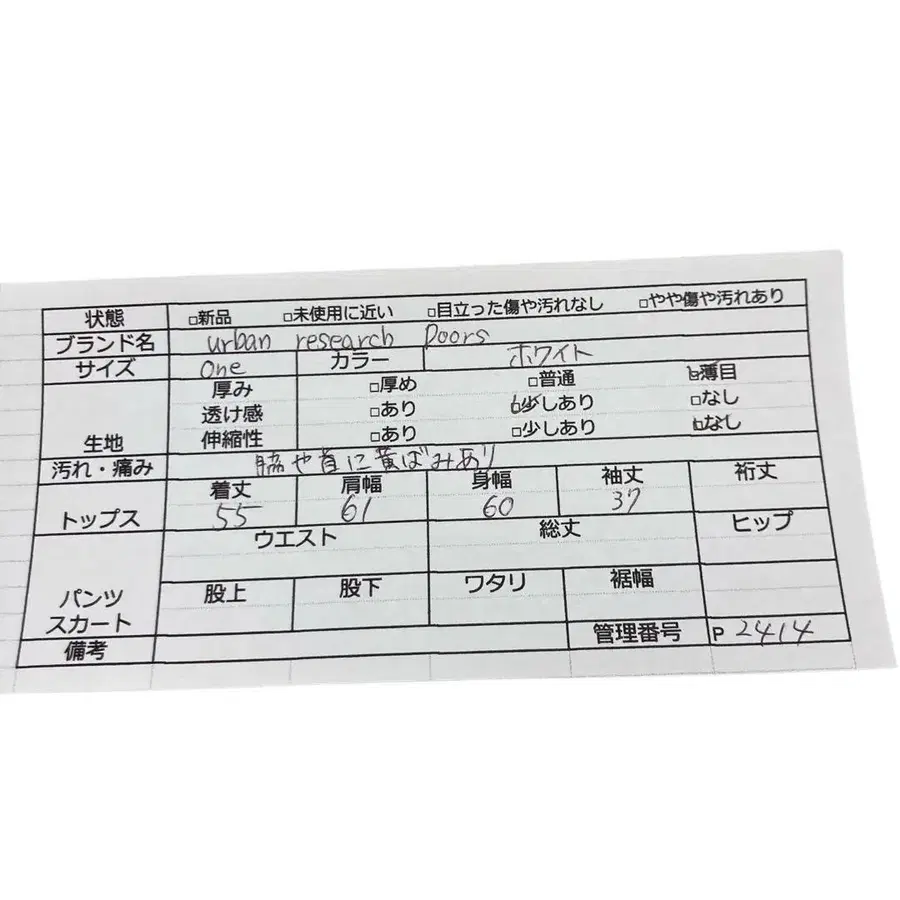 状態 □新品 □未使用に近い □目立った傷や汚れなし □やや傷や汚れあり
ブランド名 urban research Doors
サイズ one カラー ホワイト
生地 厚み □厚め □普通 □薄目
透け感 □あり □少しあり □なし
伸縮性 □あり □少しあり □なし
汚れ・痛み 脇や首に黄ばみあり
トップス 着丈 肩幅 身幅 袖丈 裄丈
55 61 60 37
パンツ スカート ウエスト 総丈 ヒップ
股上 股下 ワタリ 裾幅
備考 管理番号 P 2414